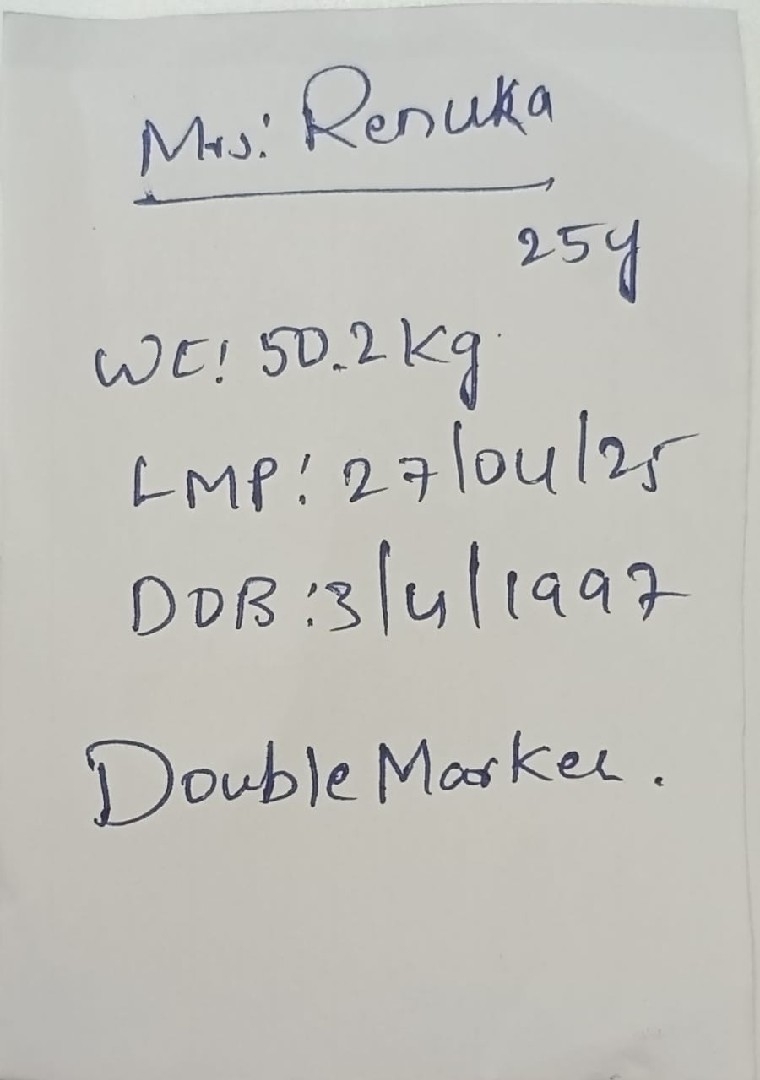 Mrs: Renuka
25y
Wt: 50.2 kg
LMP: 27/04/25
DOB: 3/4/1997
Double Marker.